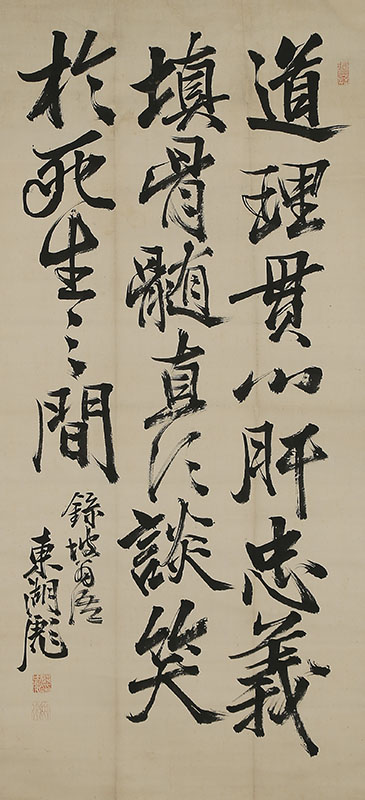 道理貫心肝忠義
填骨髄直須談笑
於死生之間
録坡語
東湖彪